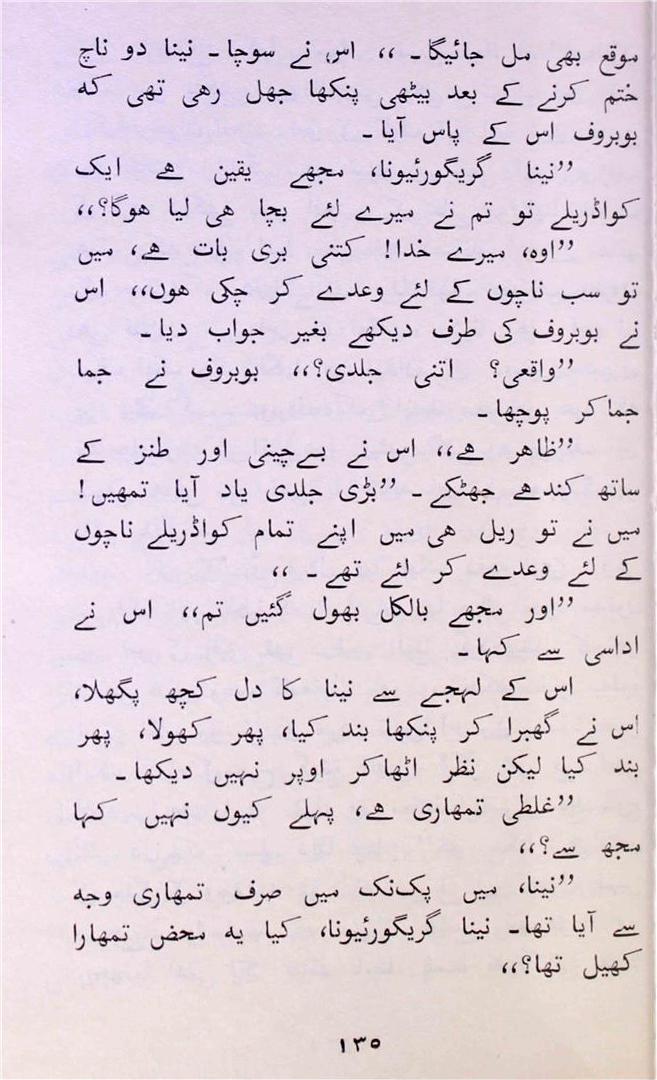 موقع بھی مل جائیگا۔ ،، اس نے سوچا۔ نینا دو ناچ
ختم کرنے کے بعد بیٹھی پنکھا جھل رھی تھی کہ
بوبروف اس کے پاس آیا۔
’’نینا گریگورئیونا، مجھے یقین ھے ایک
کواڈریلے تو تم نے میرے لئے بچا ھی لیا ھوگا؟،،
’’اوہ، میرے خدا! کتنی بری بات ھے، میں
تو سب ناچوں کے لئے وعدے کر چکی ھوں،، اس
نے بوبروف کی طرف دیکھے بغیر جواب دیا۔
’’واقعی؟ اتنی جلدی؟،، بوبروف نے جما
جماکر پوچھا۔
’’ظاھر ھے،، اس نے بےچینی اور طنز کے
ساتھ کندھے جھٹکے۔ ’’بڑی جلدی یاد آیا تمھیں!
میں نے تو ریل ھی میں اپنے تمام کواڈریلے ناچوں
کے لئے وعدے کر لئے تھے۔ ،،
’’اور مجھے بالکل بھول گئیں تم،، اس نے
اداسی سے کہا۔
اس کے لہجے سے نینا کا دل کچھ پگھلا،
اس نے گھبرا کر پنکھا بند کیا، پھر کھولا، پھر
بند کیا لیکن نظر اٹھاکر اوپر نہیں دیکھا۔
’’غلطی تمھاری ھے، پہلے کیوں نہیں کہا
مجھ سے؟،،
’’نینا، میں پکنک میں صرف تمھاری وجہ
سے آیا تھا۔ نینا گریگورئیونا، کیا یہ محض تمھارا
کھیل تھا؟،،
۱۳۵